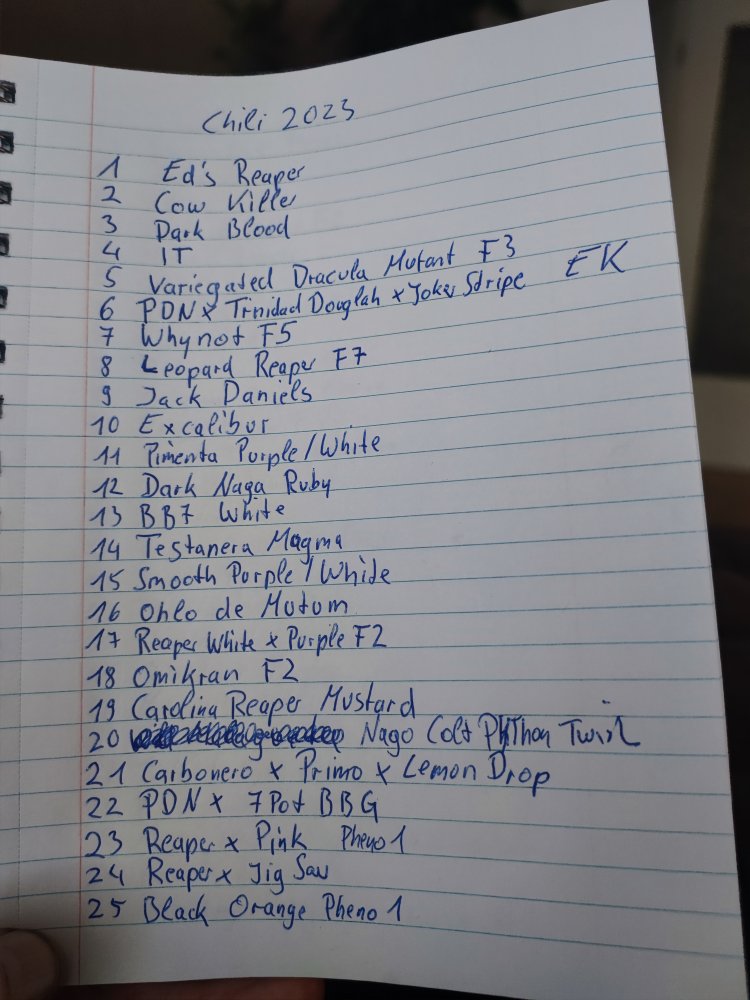 Chili 2023
1 Ed's Reaper
2 Cow Killer
3 Dark Blood
4 IT
5 Variegated Dracula Mutant F3 EK
6 PDN x Trinidad Douglah x Joker Stripe
7 Whynot F5
8 Leopard Reaper F7
9 Jack Daniels
10 Excalibur
11 Pimenta Purple/White
12 Dark Naga Ruby
13 BB7 White
14 Testanera Magma
15 Smooth Purple/White
16 Ohlo de Mutum
17 Reaper White x Purple F2
18 Omikran F2
19 Carolina Reaper Mustard
20 Nago Colt PYThon Twirl
21 Carbonero x Primo x Lemon Drop
22 PDN x 7Pot BBG
23 Reaper x Pink Pheno 1
24 Reaper x Jig Saw
25 Black Orange Pheno 1